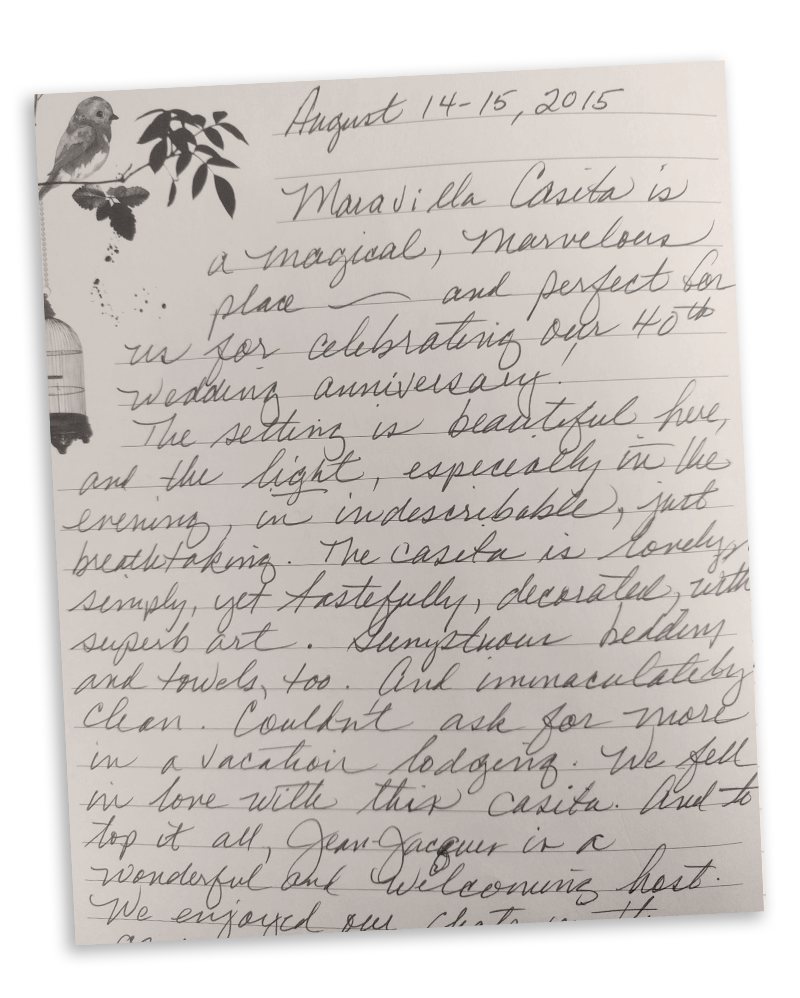 August 14-15, 2015
Maravilla Casita is
a magical, marvelous
place — and perfect for
us for celebrating our 40th
wedding anniversary!
The setting is beautiful here,
and the light, especially in the
evening, is indescribable, just
breathtaking. The casita is lovely,
simply, yet tastefully, decorated, with
superb art. Sumptuous bedding
and towels, too. And immaculately
clean. Couldn't ask for more
in a vacation lodging. We fell
in love with this casita. And to
top it all, Jean-Jacques is a
wonderful and welcoming host.
We enjoyed our chats in the